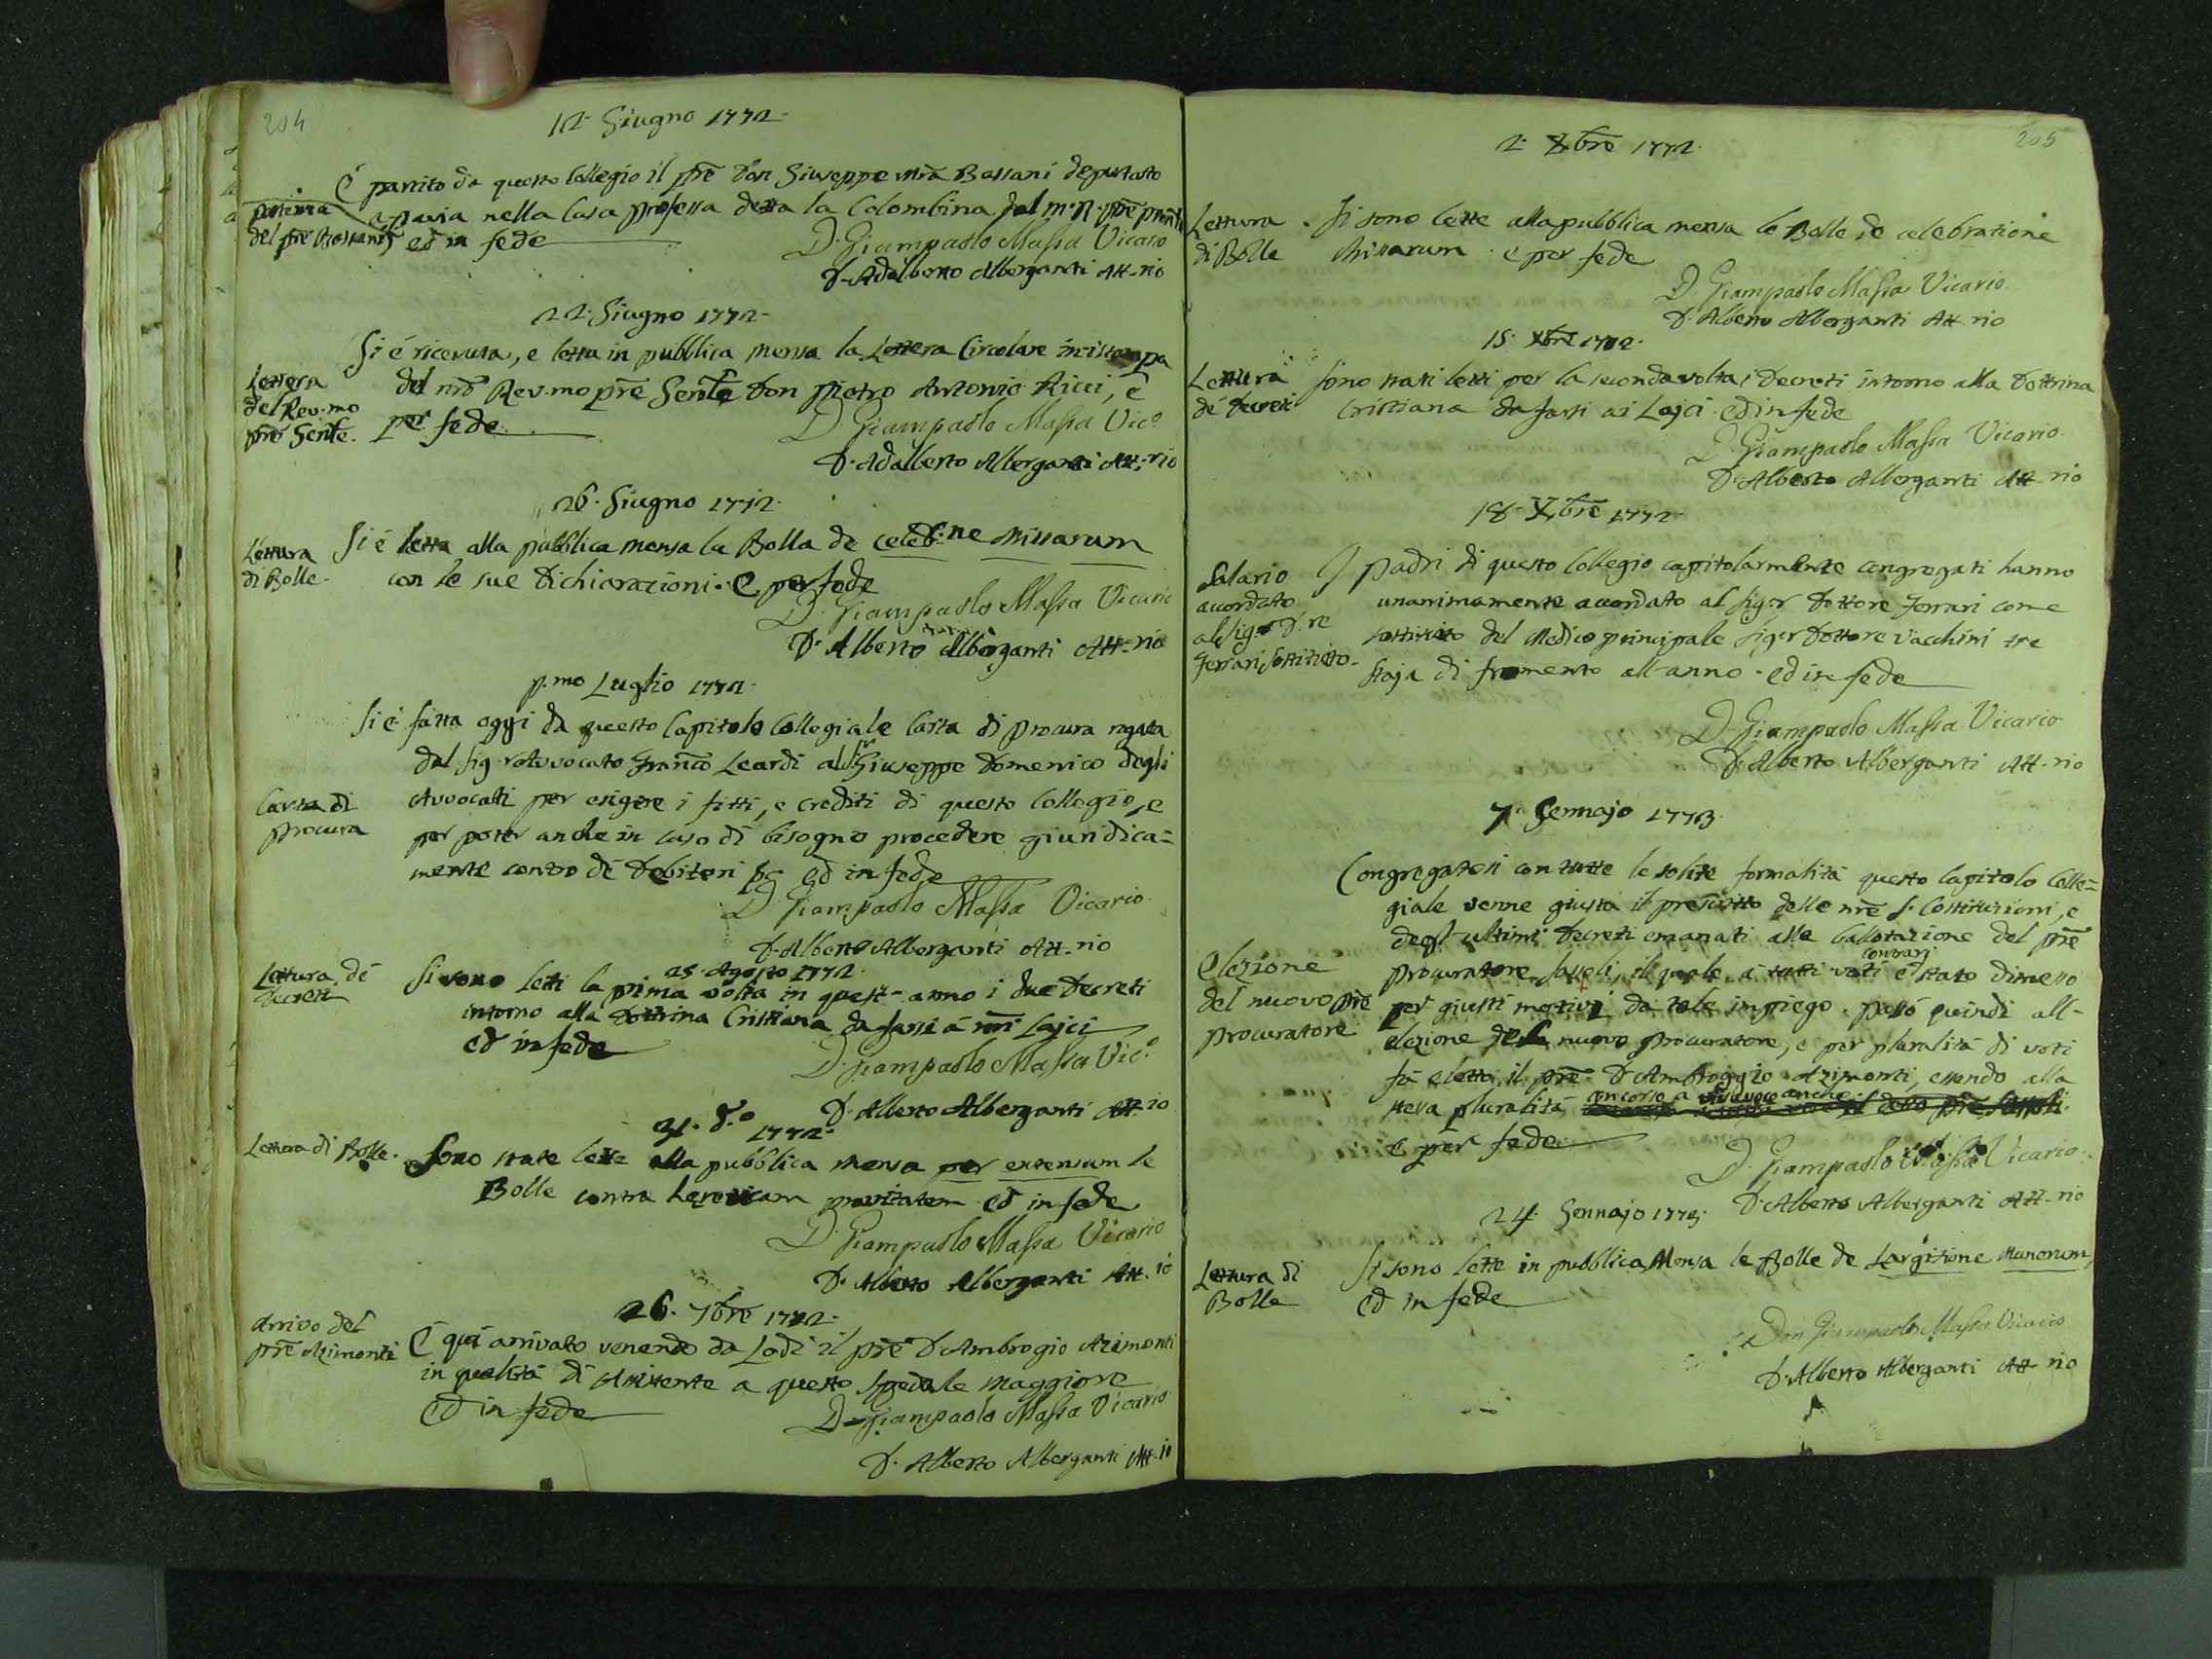 204
12. Giugno 1772.
É partito da questo Collegio il pre Don Giuseppe Mra Bassani deputato
partenza
a pavia nella Casa professa detta la Colombina dal m. R. pre
del pre Bassani
ed in fede
D. Giampaolo Massa Vicario
D. Adalberto Alberganti Att-rio
22. Giugno 1772.
Si é ricevuta, e letta in pubblica mensa la Lettera Circolare in istampa
Lettera
del Rev.mo
pre Genle.
del nro Rev.mo pre Genle Don Pietro Antonio Ricci, e
per fede
D. Giampaolo Massa Vic.o
D. Adalberto Alberganti Att-rio
26. Giugno 1772.
Lettura
di Bolle.
Si é letta alla pubblica mensa la Bolla de celeb.ne Missarum
con le sue dichiarazioni. E per fede
D. Giampaolo Massa Vicario
D. Alberto Alberganti Att-rio
p.mo Luglio 1772.
Si é fatta oggi da questo Capitolo Collegiale Carta di procura rogata
dal Sig.r Avvocato Franco Leardi al Sig.r Giuseppe Domenico degli
Carta di
procura
Avvocati per esigere i fitti, e crediti di questo Collegio, e
per poter anche in caso di bisogno procedere giuridica=
mente contro dé debitori pc ed in fede
D. Giampaolo Massa Vicario
D. Alberto Alberganti Att-rio
25. Agosto 1772.
Lettura dé
decreti
Si sono letti la prima volta in quest-anno i due decreti
intorno alla dottrina Cristiana da farsi á nri Lajci
ed in fede
D. Giampaolo Massa Vic.o
D. Alberto Alberganti Att-io
31. d.o 1772.
Lettura di Bolle.
Sono state lette alla pubblica mensa per extensum le
Bolle contra hereticam pravitatem ed in fede
D. Giampaolo Massa Vicario
D. Alberto Alberganti Att-io
26. 7bre 1772.
Arrivo del
pre Azimonti
É qui arrivato venendo da Lodi il pre D. Ambrogio Azimonti
in qualitá di Assistente a questo Spedale maggiore
ed in fede
D. Giampaolo Massa Vicario
D. Alberto Alberganti Att-io
205
2. Xbre 1772.
Lettura
di Bolle
Si sono lette alla pubblica mensa le Bolle de celebratione
Missarum. e per fede
D. Giampaolo Massa Vicario
D. Alberto Alberganti Att-rio
15. Xbre 1772.
Lettura
dé decreti
Sono stati letti per la seconda volta i decreti intorno alla dottrina
Cristiana da farsi ai Lajci. ed in fede
D. Giampaolo Massa Vicario
D. Alberto Alberganti Att-rio
18. Xbre 1772.
Salario
accordato
al Sig.r D.re
Ferrari Sostituto.
I padri di questo Collegio capitolarmente congregati hanno
unanimamente accordato al Sig.r Dottore Ferrari come
sostituto del Medico principale Sig.r Dottore Vacchini tre
Staja di fromento all-anno. ed in fede
D. Giampaolo Massa Vicario
D. Alberto Alberganti Att-rio
7. Gennajo 1773.
Congregatosi con tutte le solite formalitá questo Capitolo Colle=
giale venne giusta il prescritto delle nre S. Costituzioni, e
degl-ultimi decreti emanati alla ballotazione del pre
Elezione
del nuovo pre
procuratore
procuratore Sassoli, il quale á tutti voti contrari é stato dimesso
per giusti motivi da tale impiego. Passó quindi all-
elezione del nuovo procuratore, e per pluralitá di voti
fú eletto il pre D. Ambroggio Azimonti, essendo alla
stessa pluralitá concorso a viva voce anche il detto pre Sassoli.
e per fede
D. Giampaolo Massa Vicario
D. Alberto Alberganti Att-rio
24. Gennajo 1773.
Lettura di
Bolle
Si sono lette in pubblica Mensa le Bolle de Largitione Munerum,
ed in fede
Don Giampaolo Massa Vicario
D. Alberto Alberganti Att-rio